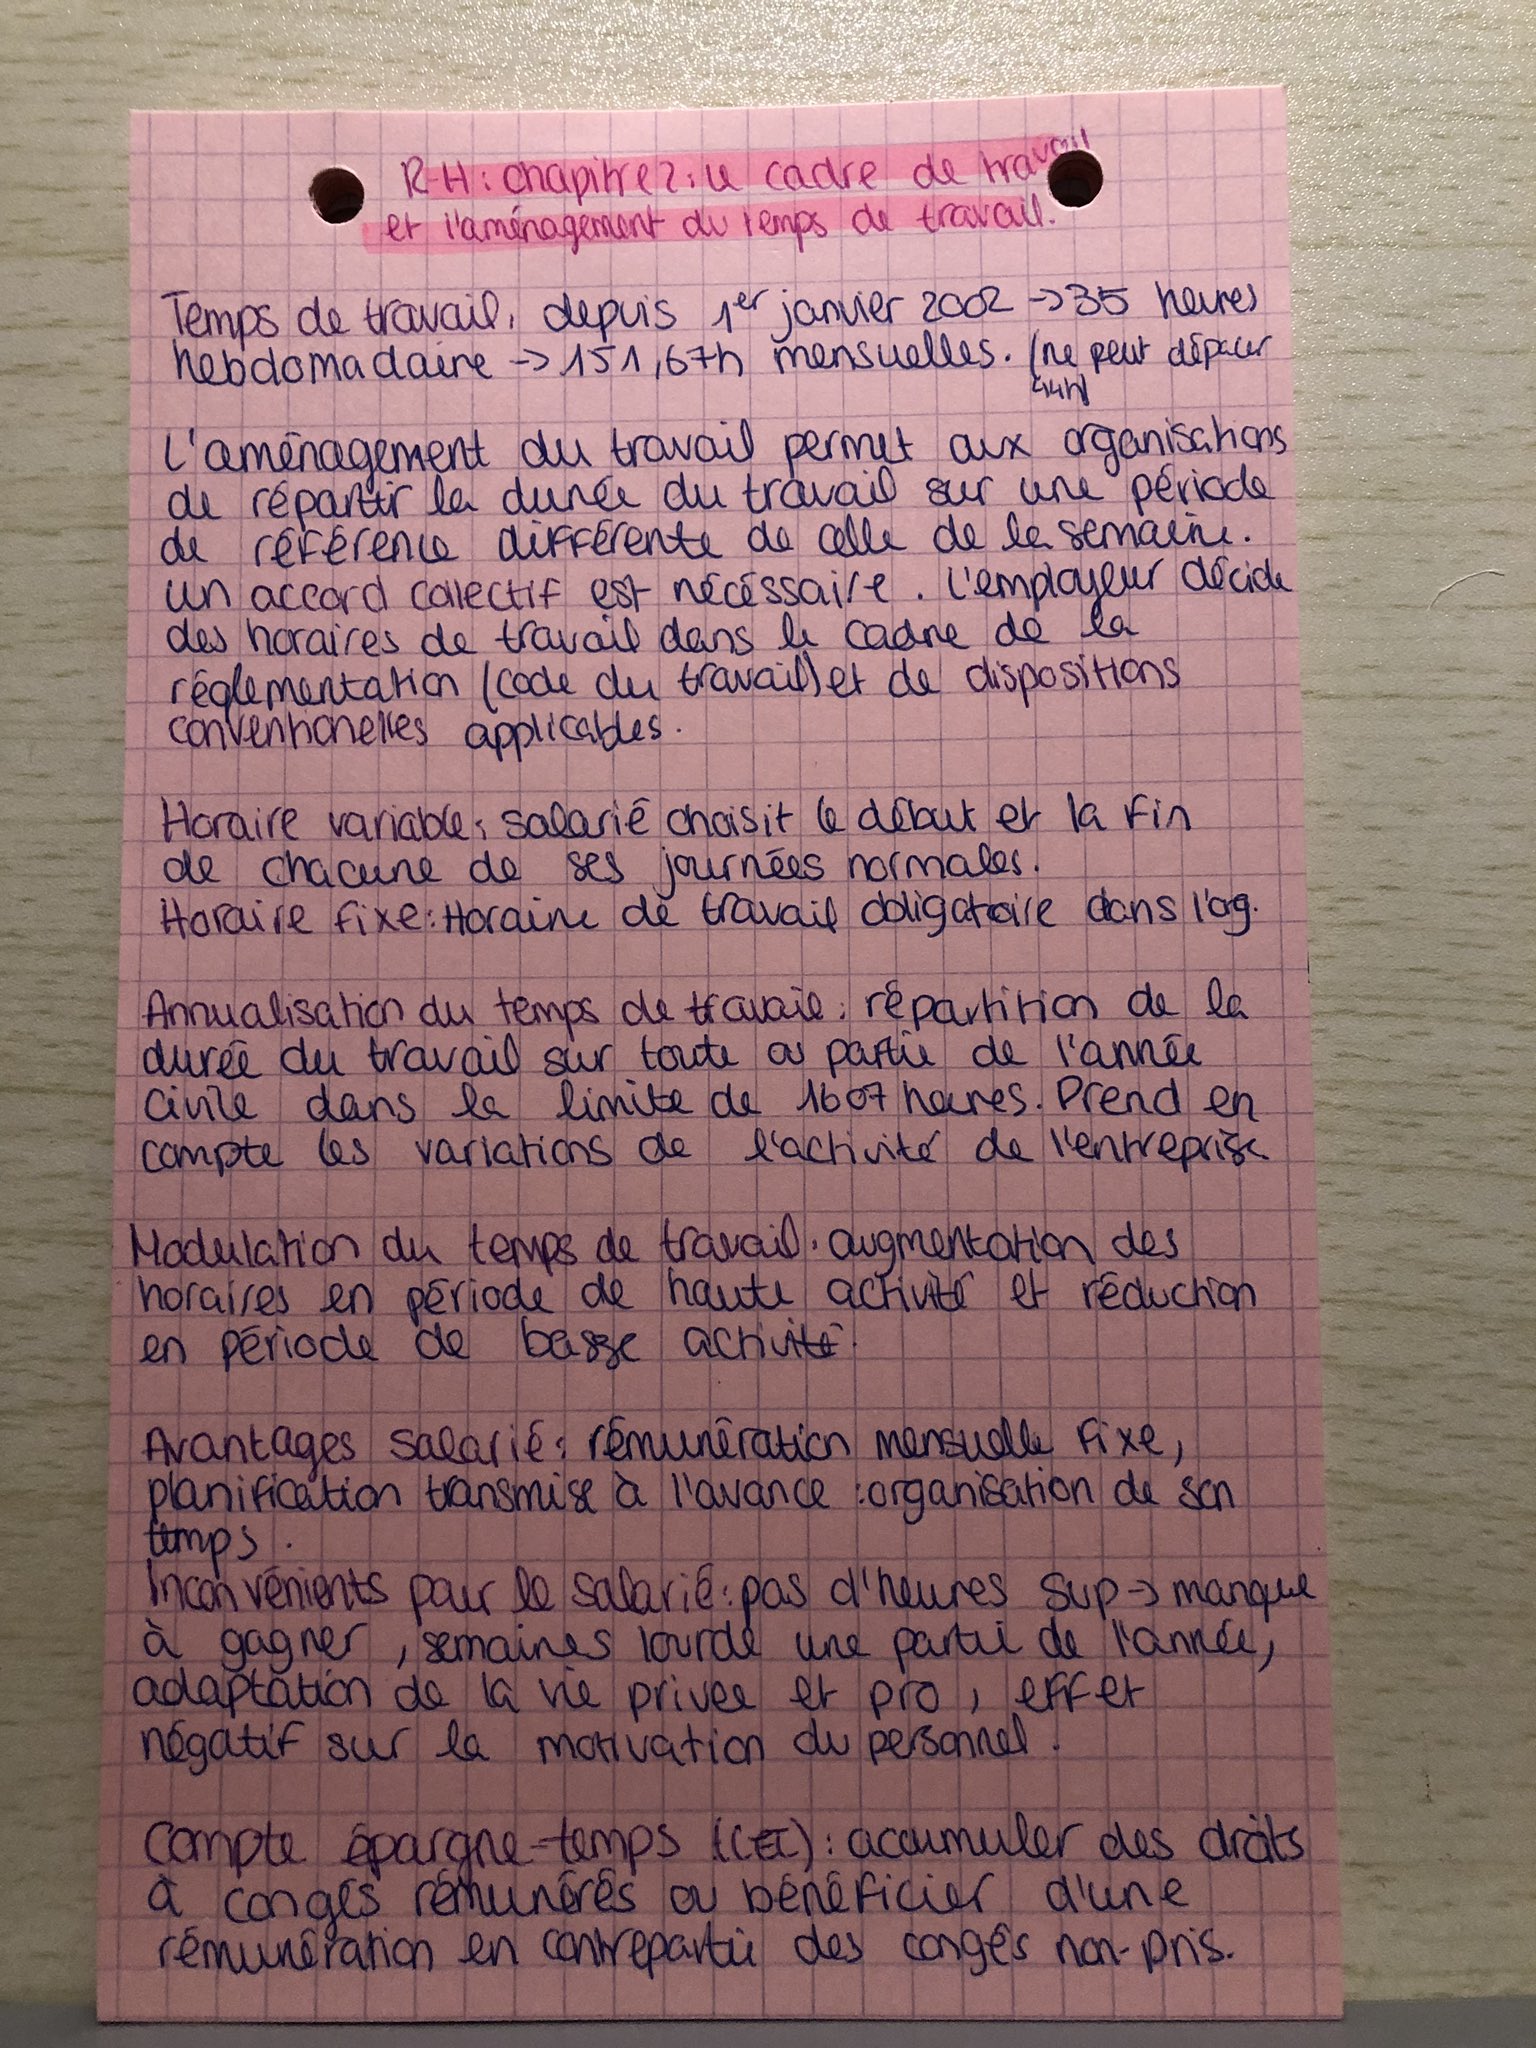 R-H : chapitre 2 : le cadre de travail
et l'aménagement du temps de travail.
Temps de travail, depuis 1er janvier 2002 → 35 heures
hebdomadaire → 151,67h mensuelles. (ne peut dépacer
44h)
L'aménagement du travail permet aux organisations
de répartir la durée du travail sur une période
de référence différente de celle de la semaine.
Un accord collectif est nécéssaire. L'employeur décide
des horaires de travail dans le cadre de la
réglementation (code du travail) et de dispositions
conventionelles applicables.
Horaire variable : salarié choisit le début et la fin
de chacune de ses journées normales.
Horaire fixe : Horaire de travail obligatoire dans l'og.
Annualisation du temps de travail : répartition de la
durée du travail sur toute ou partie de l'année
civile dans la limite de 1607 heures. Prend en
compte les variations de l'activité de l'entreprise
Modulation du temps de travail : augmentation des
horaires en période de haute activité et réduction
en période de basse activité.
Avantages salarié : rémunération mensuelle fixe,
planification transmise à l'avance : organisation de son
temps.
Inconvénients pour le salarié : pas d'heures sup → manque
à gagner, semaines lourde une partie de l'année,
adaptation de la vie privee et pro, effet
négatif sur la motivation du personnel.
Compte épargne-temps (CET) : accumuler des droits
à congés rémunérés ou bénéficier d'une
rémunération en contrepartie des congés non-pris.